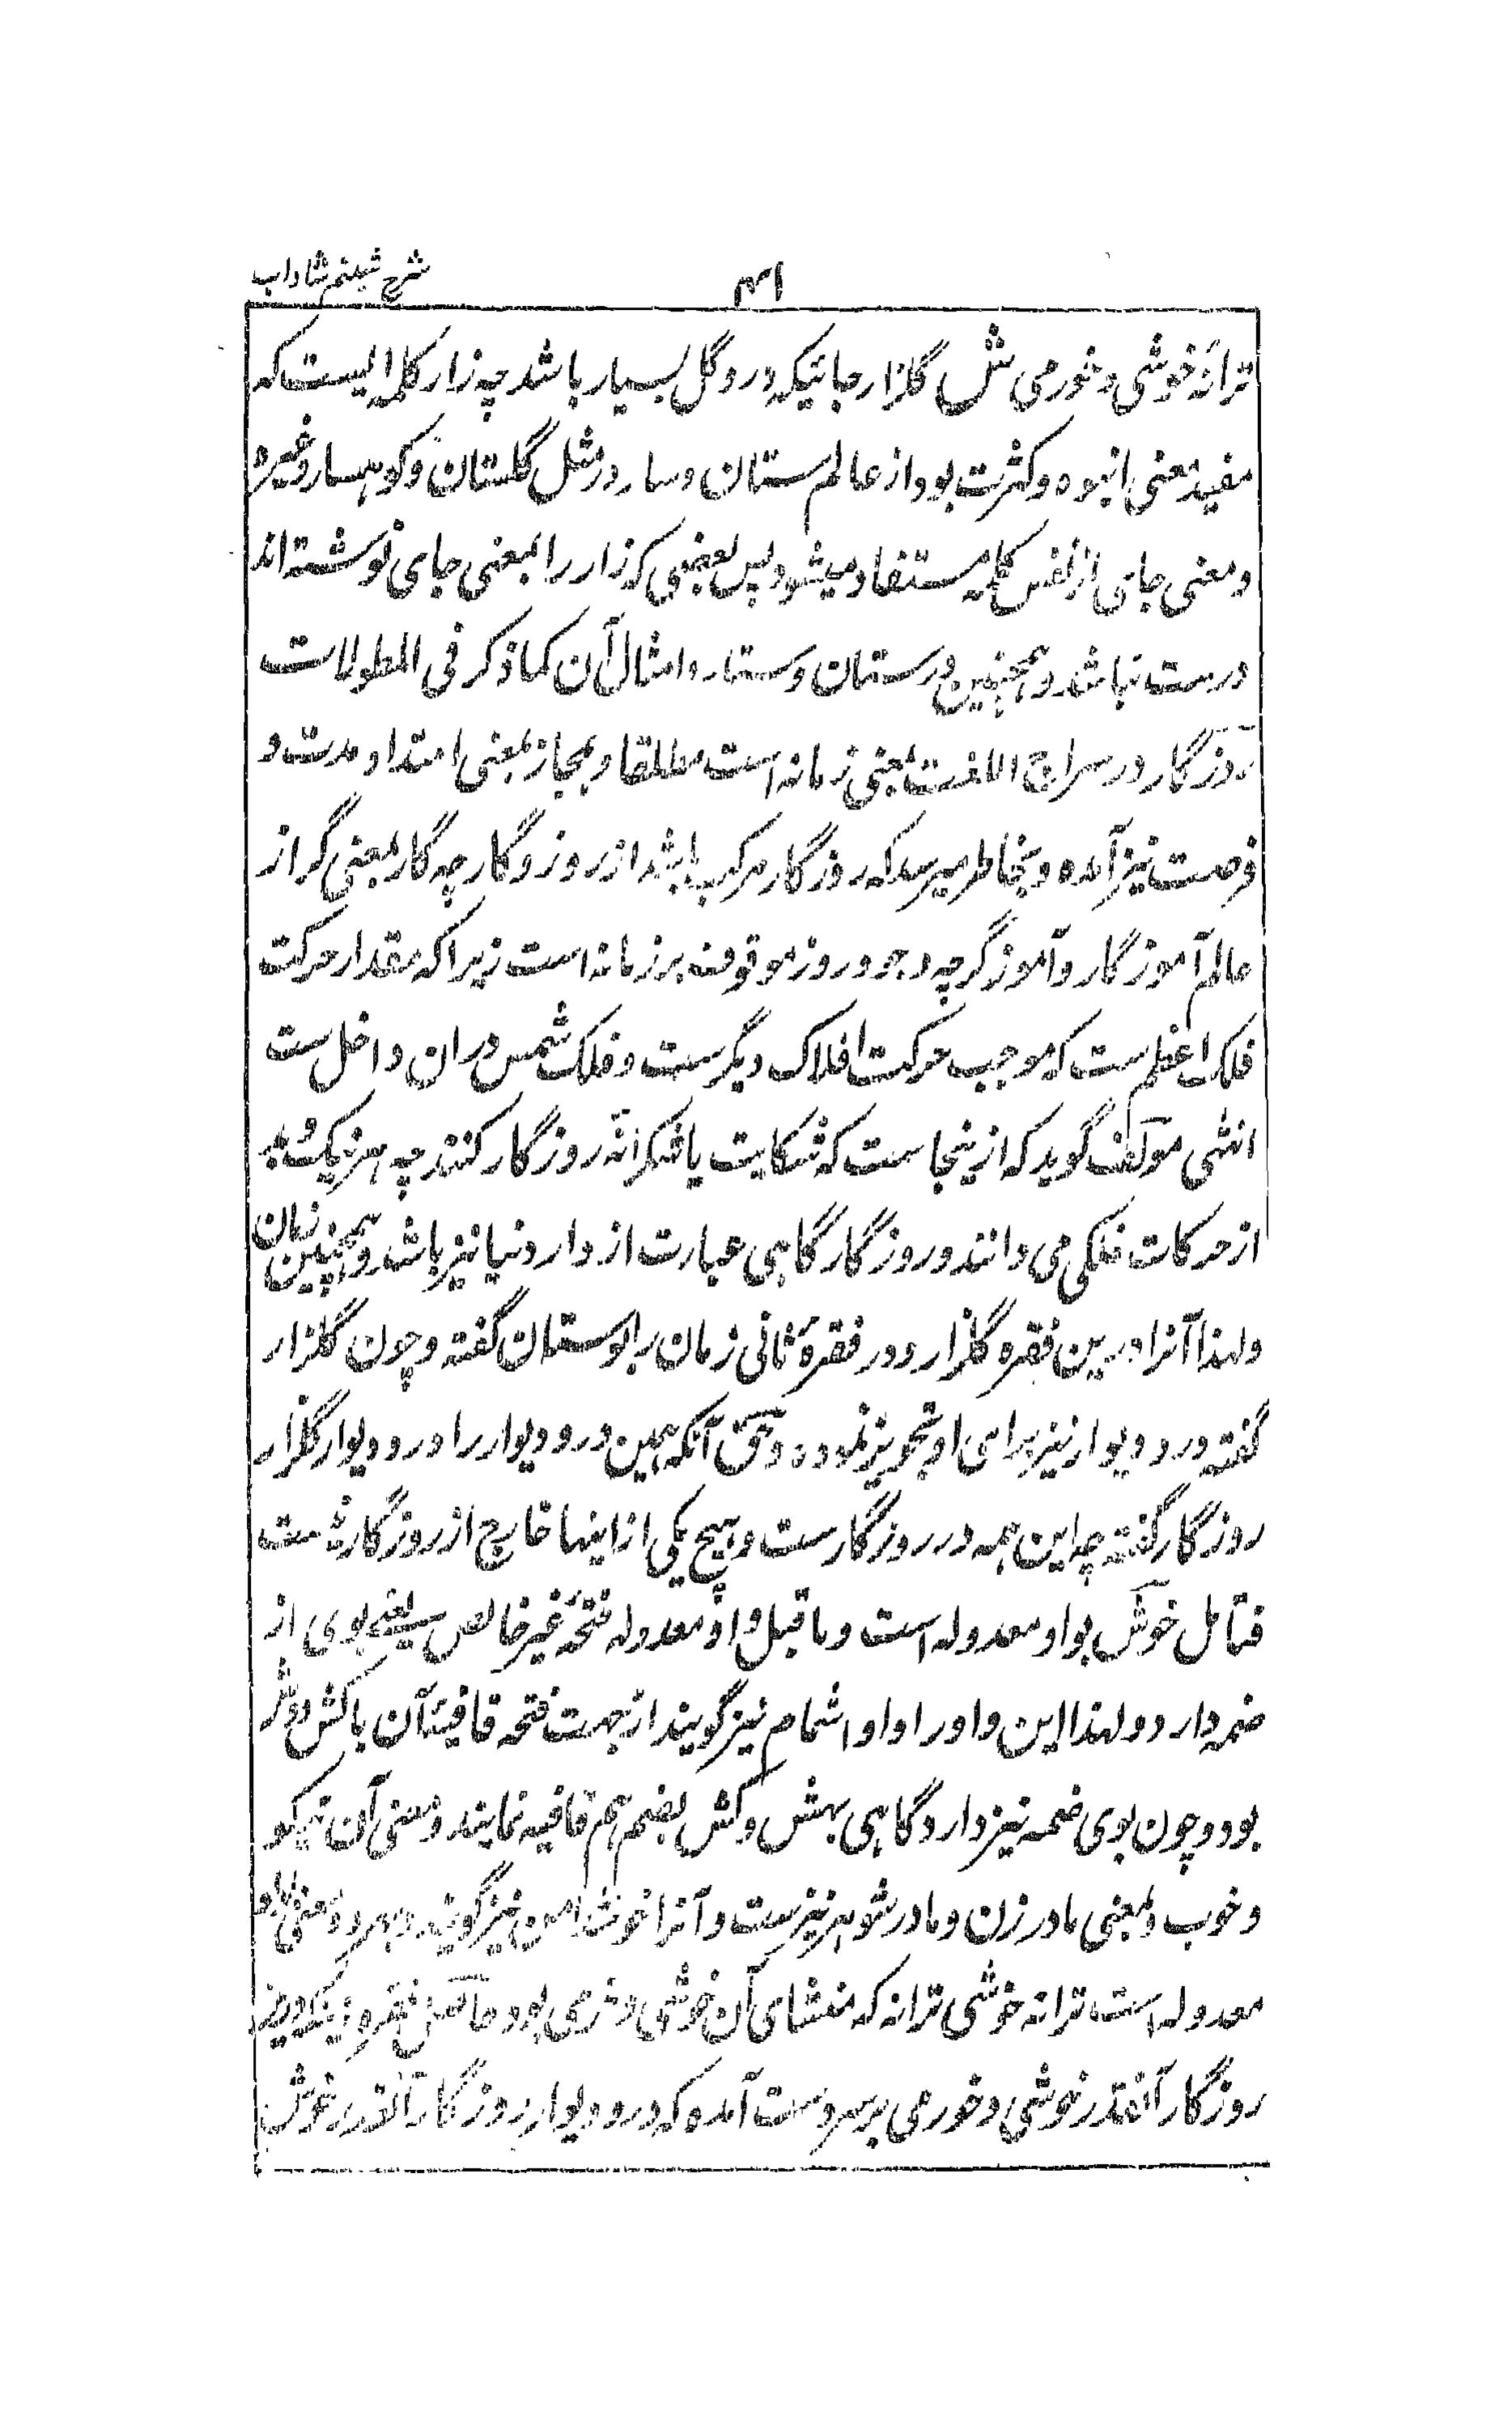 شرح شبنم شاداب
۴۱
ترانهٔ خوشی و خورمی مثل گلزار جائیکه درو گل بسیار باشد چه زار کلمه ایست که
مفید معنی انبوه و کثرت بود از عالم ستان و سار در مثل گلستان و کوهسار وغیره
و معنی جای از نفس کلمه مستفاد میشود پس بعضی که زار را بمعنی جای نوشته اند
درست نباشد و همچنین در ستان و ستار و امثال آن کما ذکر فی المطولات
روزگار در سراج اللغت بمعنی زمانه است مطلقا و بمجاز بمعنی امتداد مدت و
فرصت نیز آمده و بخاطر میرسد که روزگار مرکب باشد از روز و گار چه گار بمعنی گر از
عالم آموزگار و آموزگر چه وجود روز موقوف بر زمانه است زیرا که مقدار حرکت
فلک اعظم ست که موجب حرکت افلاک دیگرست و فلک شمس دران داخل ست
انتهی مؤلف گوید که ازینجاست که شکایت یا شکرانه روزگار کنند چه هر نیک و بد
از حرکات فلکی می دانند و روزگار گاهی عبارت از دار دنیا نیز باشد و همچنین زمان
ولهذا آنرا درین فقره گلزار و در فقرهٔ ثانی زمان را بوستان گفته و چون گلزار
گفته در و دیوار نیز برای او تجویز نموده و حق آنکه همین در و دیوار را در و دیوار گلزار
روزگار گفته چه این همه در روزگارست و هیچ یکی از اینها خارج از روزگار نیست
فتامل خوش بواو معدوله است و ماقبل واو معدوله فتحهٔ غیر خالص یعنے بوی از
ضمه دارد و لهذا این واو را واو اشمام نیز گویند از جهت فتحه قافیهٔ آن باکش و شر
بود و چون بوی ضمه نیز دارد گاهی بهش و کش بضم هم قافیه نمایند و معنی آن نیکو
و خوب و بمعنی مادر زن و مادر شوهر نیز ست و آنرا خوشدامن نیز گویند و بهر دو معنی بواو
معدوله است ترانه خوشی ترانه که منشای آن خوشی و خرمی بود حاصل فقره اینکه در
روزگار آنقدر خوشی و خورمی بر سر دست آمده که در و دیوار روزگار آنقدر خوش